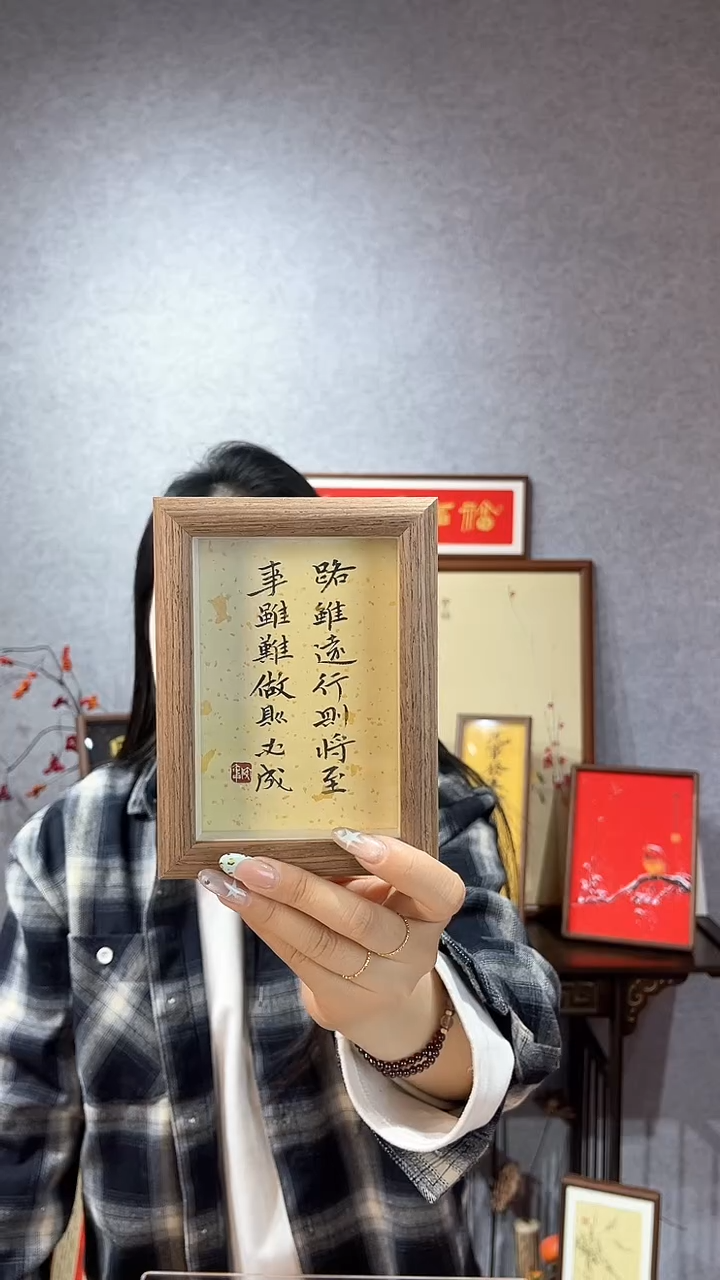 路雖遠行則將至
事雖難做則必成
福